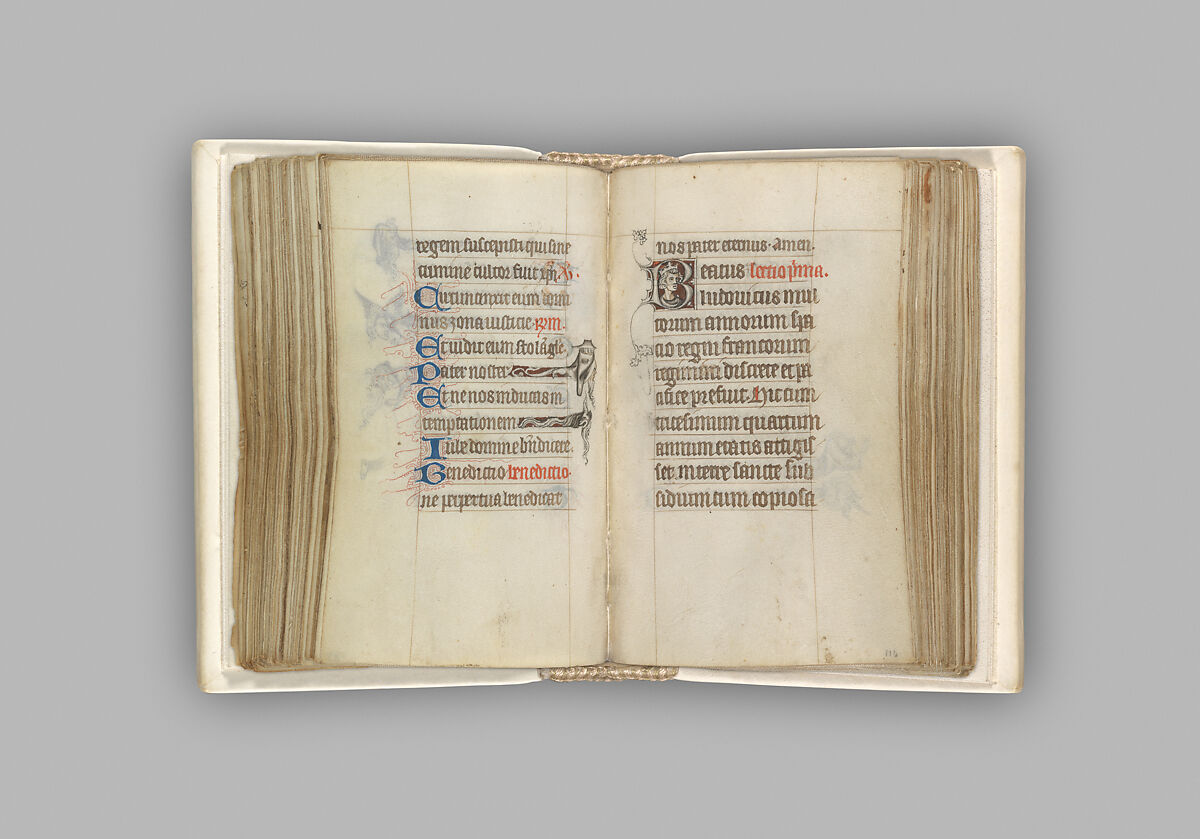 regem suscepisti qui sine
crimine cultor fuit ip̃i. V̊.
Circumcinxit eum domi
nus zona iusticie. R̃m.
Et induit eum stola gl̃e.
Pater noster
Et ne nos inducas in
temptationem
Iube domne b̃ndicere.
Benedictio benedictio.
ne perpetua benedicat
nos pater eternus. amen.
Beatus lectio p̃ma.
ludovicus mul
torum annorum spa
cio regni francorum
regimini discrete et pa
cifice prefuit. Hic cum
tricesimum quartum
annum etatis attigis
set. in terre sancte sub
sidium cum copiosa
116